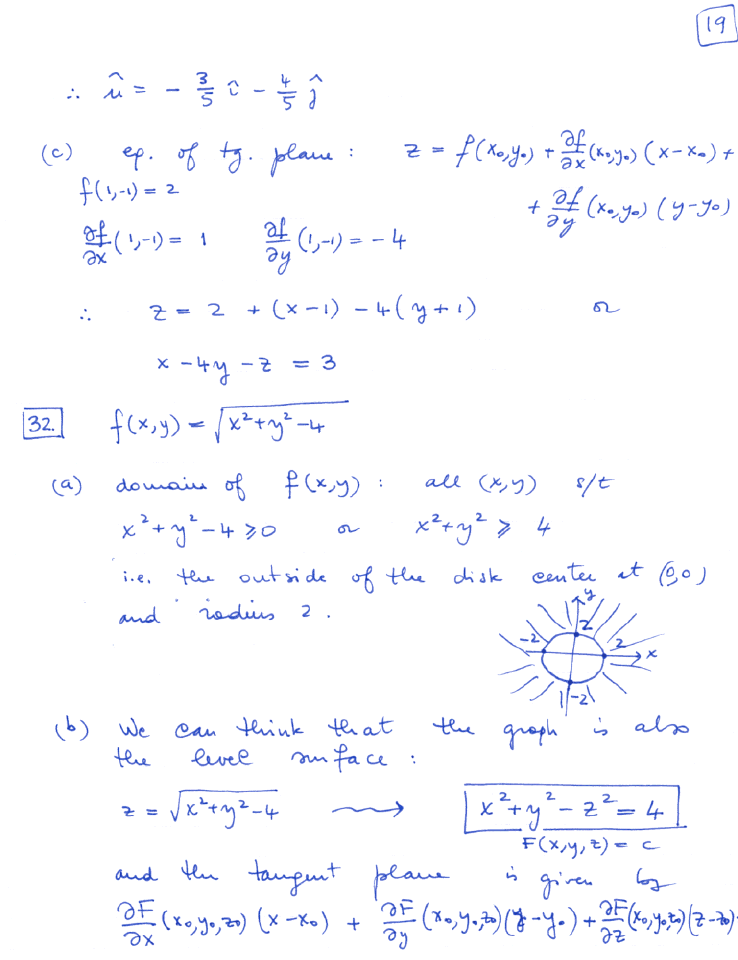 19
∴ û = - 3/5 î - 4/5 ĵ
(c) eq. of tg. plane : z = f(x₀,y₀) + ∂f/∂x (x₀,y₀) (x-x₀) +
f(1,-1) = 2 + ∂f/∂y (x₀,y₀) (y-y₀)
∂f/∂x (1,-1) = 1 ∂f/∂y (1,-1) = -4
∴ z = 2 + (x-1) - 4(y+1) or
x - 4y - z = 3
32. f(x,y) = √(x²+y²-4)
(a) domain of f(x,y) : all (x,y) s/t
x² + y² - 4 ⩾ 0 or x² + y² ⩾ 4
i.e. the outside of the disk center at (0,0)
and radius 2 .
y
2
-2 2
x
-2
(b) We can think that the graph is also
the level surface :
z = √(x²+y²-4) ⟿ x² + y² - z² = 4
F(x,y,z) = c
and the tangent plane is given by
∂F/∂x (x₀,y₀,z₀) (x-x₀) + ∂F/∂y (x₀,y₀,z₀) (y-y₀) + ∂F/∂z (x₀,y₀,z₀) (z-z₀)